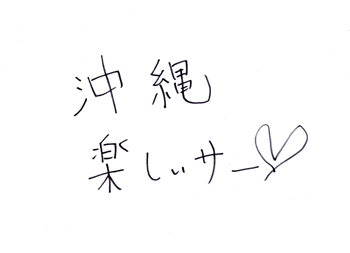 沖縄
楽しいサー♡